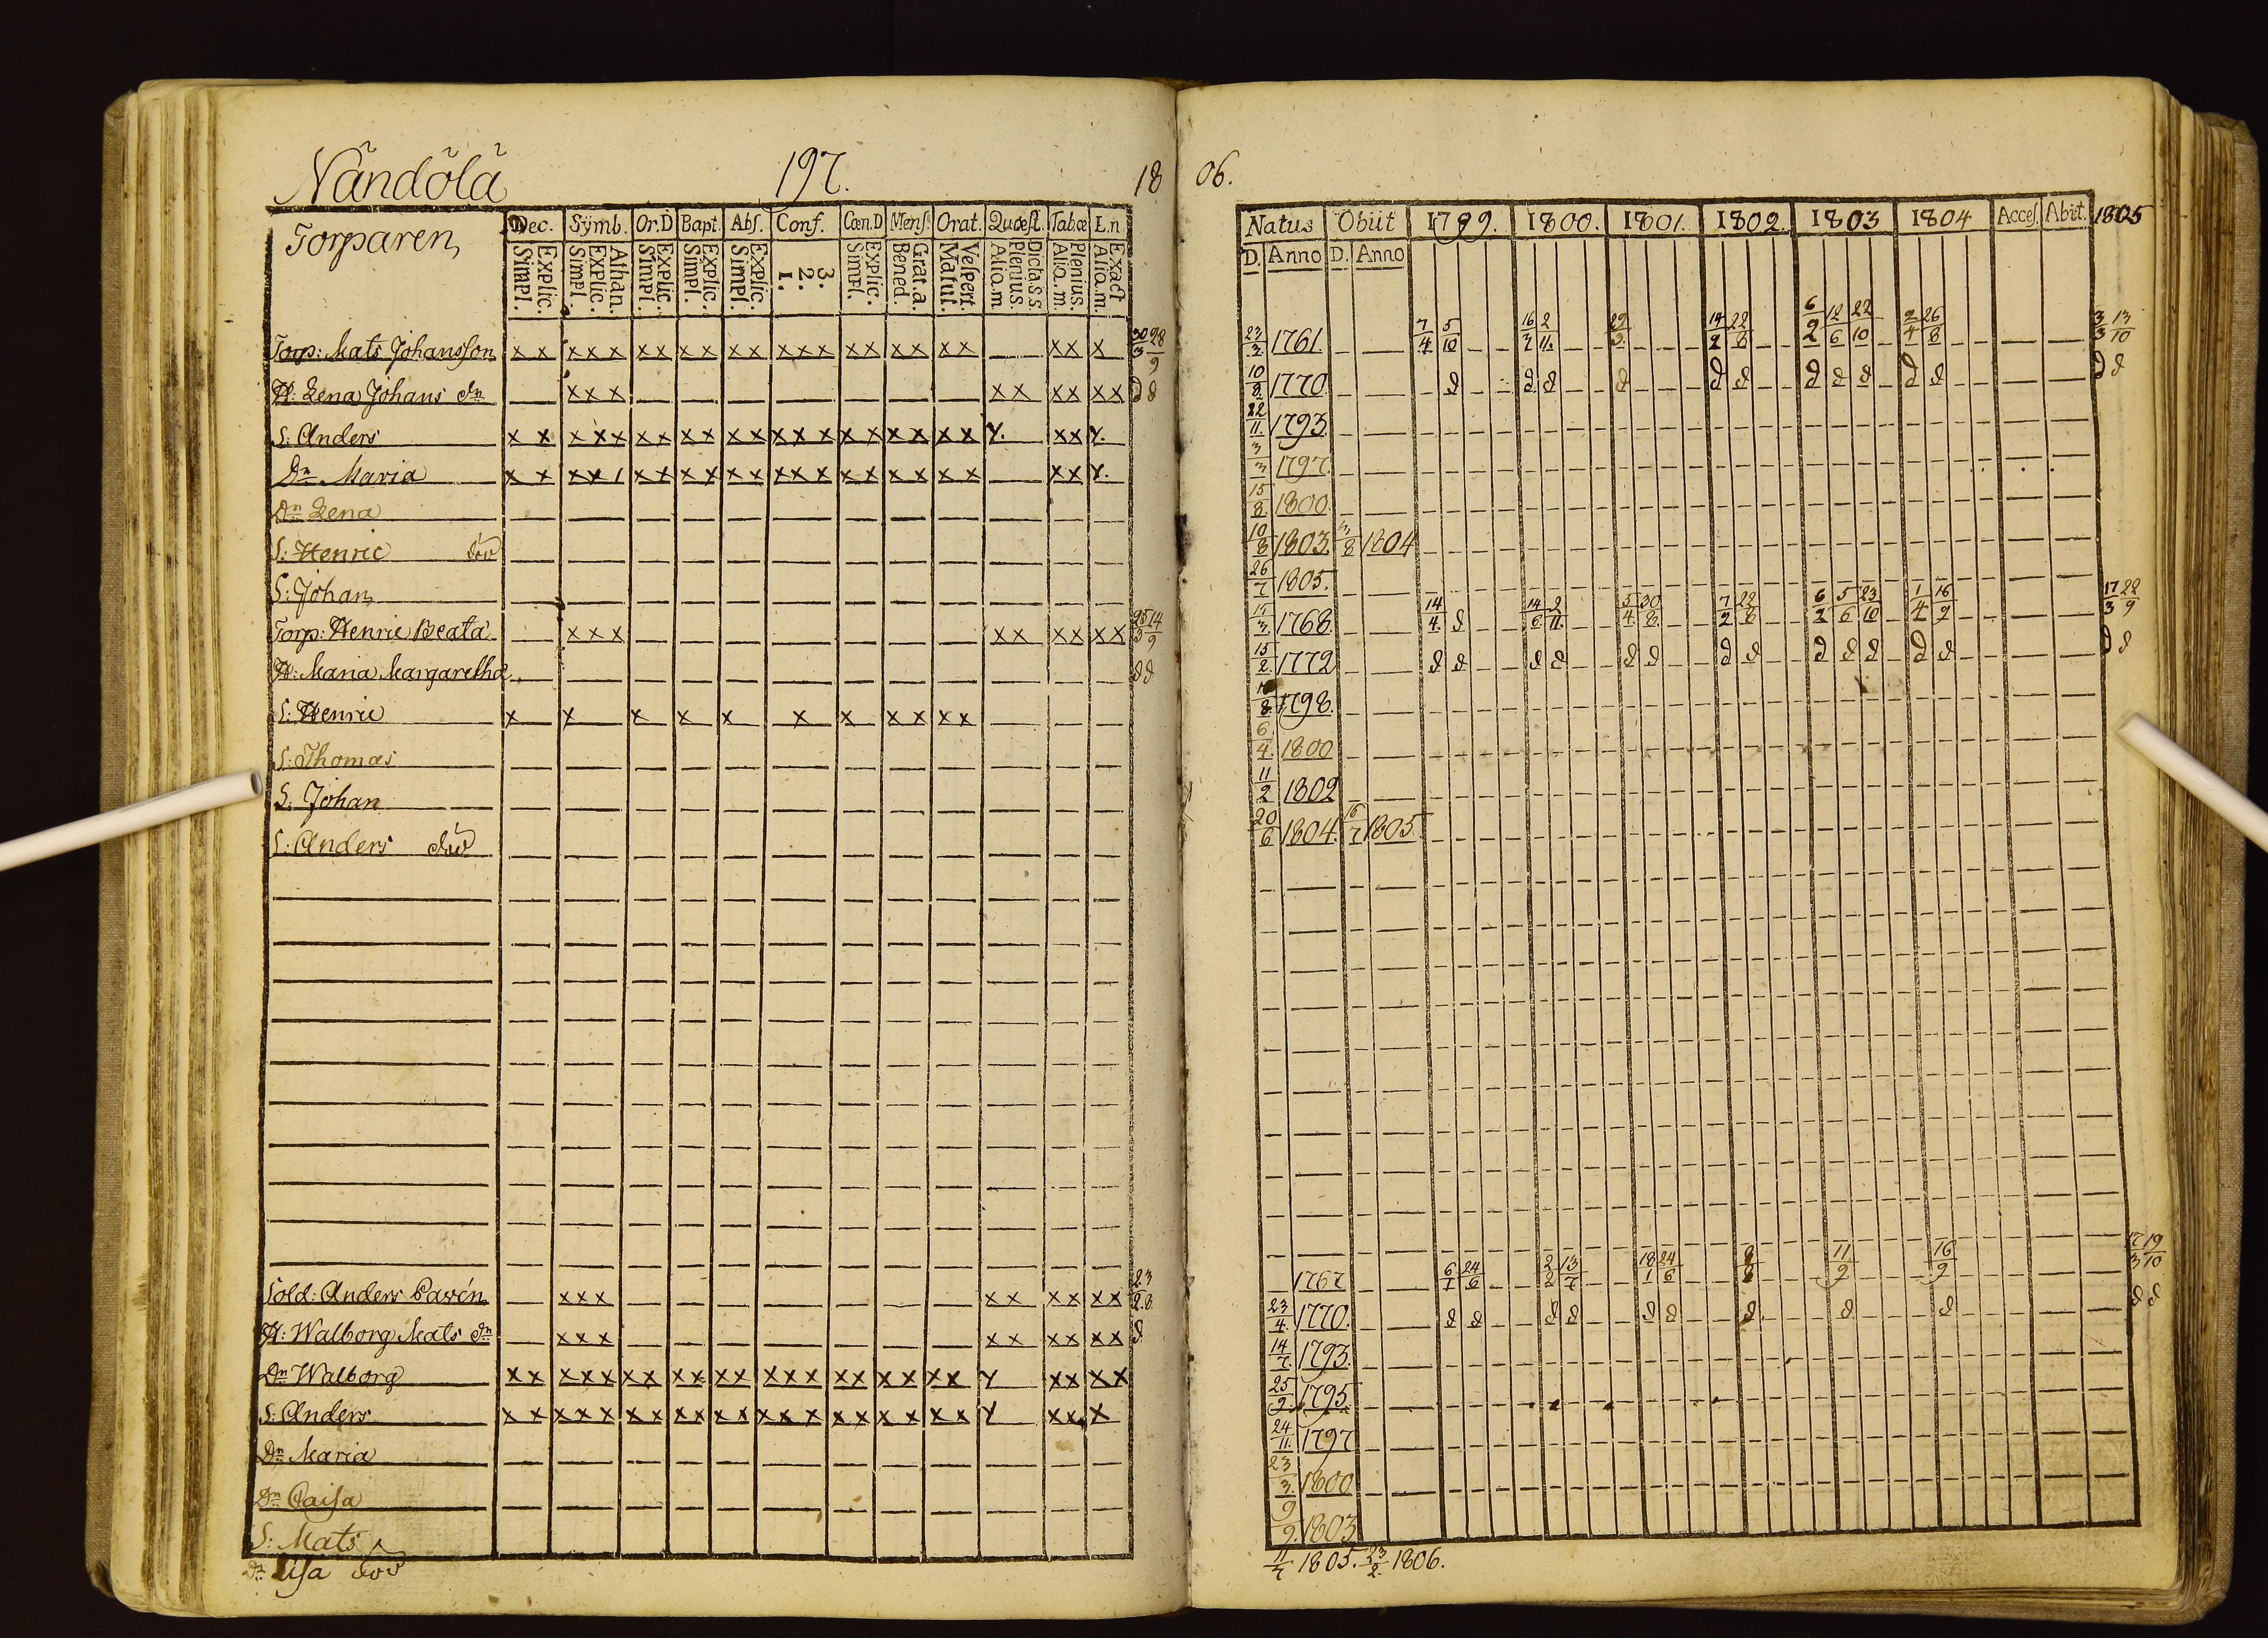 Nändölä 197. 18 06.
Torparen,
Dec. Symb. Or.D Bapt. Abs. Conf. Cœn.D Mens. Orat. Quæst. Tabæ L.n
Explic. Simpl. Athan. Explic. Simpl. Explic. Simpl. Explic. Simpl. Explic. Simpl. 3. 2. 1. Explic. Simpl. Grat.a. Bened. Vespert. Matut. Dicta.s.s. Plenius Aliq.m Plenius. Aliq.m Exact Aliq.m.
Natus Obiit 1799. 1800. 1801. 1802. 1803 1804 Acces. Abit. 1805
D. Anno D. Anno
Torp: Mats Johansson x x x x x x x x x x x x x x x x x x x x x x x 30/3 28/9 23/3 1761 7/4 5/10 16/7 2/11 14/2 22/8 6/2 12/6 22/10 2/4 26/8 3/3 13/10
H: Lena Johans dr x x x x x x x x x d d 10/8 1770 d d d d d d d d d d d d d
S: Anders x x x x x x x x x x x x x x x x x x x x Y. x x Y. 22/11 1793
Dr Maria x x x x / x x x x x x x x x x x x x x x x x Y. 3/3 1797
Dr Lena 15/8 1800
S: Henric död 10/8 1803. 1804
S: Johan 26/7 1805.
Torp: Henric Beata x x x x x x x x x 25/3 14/9 15/3 1768 14/4 d 14/6 2/11 5/4 30/8 7/2 22/8 6/2 5/6 23/10 1/4 16/9 17/3 22/9
H: Maria Margaretha d d 15/2 1772 d d d d d d d d d d d d d d d
S: Henric x x x x x x x x x x x 1798
S: Thomas 6/4 1800
S: Johan 11/2 1802
S: Anders död 20/6 1804. 16/7 1805
Sold: Anders Pavén x x x x x x x x x 23/2.8 1767 6/1 24/6 2/2 13/7 18/1 24/6 11/9 16/9 17/3 19/10
H: Walborg Mats dr x x x x x x x x x d 23/4 1770 d d d d d d d d d d d
Dr Walborg x x x x x x x x x x x x x x x x x x x x Y x x x x 14/7 1793
S: Anders x x x x x x x x x x x x x x x x x x x x Y x x x 25/9 1795
Dr Maria 24/11 1797
Dr Caisa 23/3 1800
S: Mats 9/9 1803
Dr Lisa död 11/7 1805. 23/2 1806.